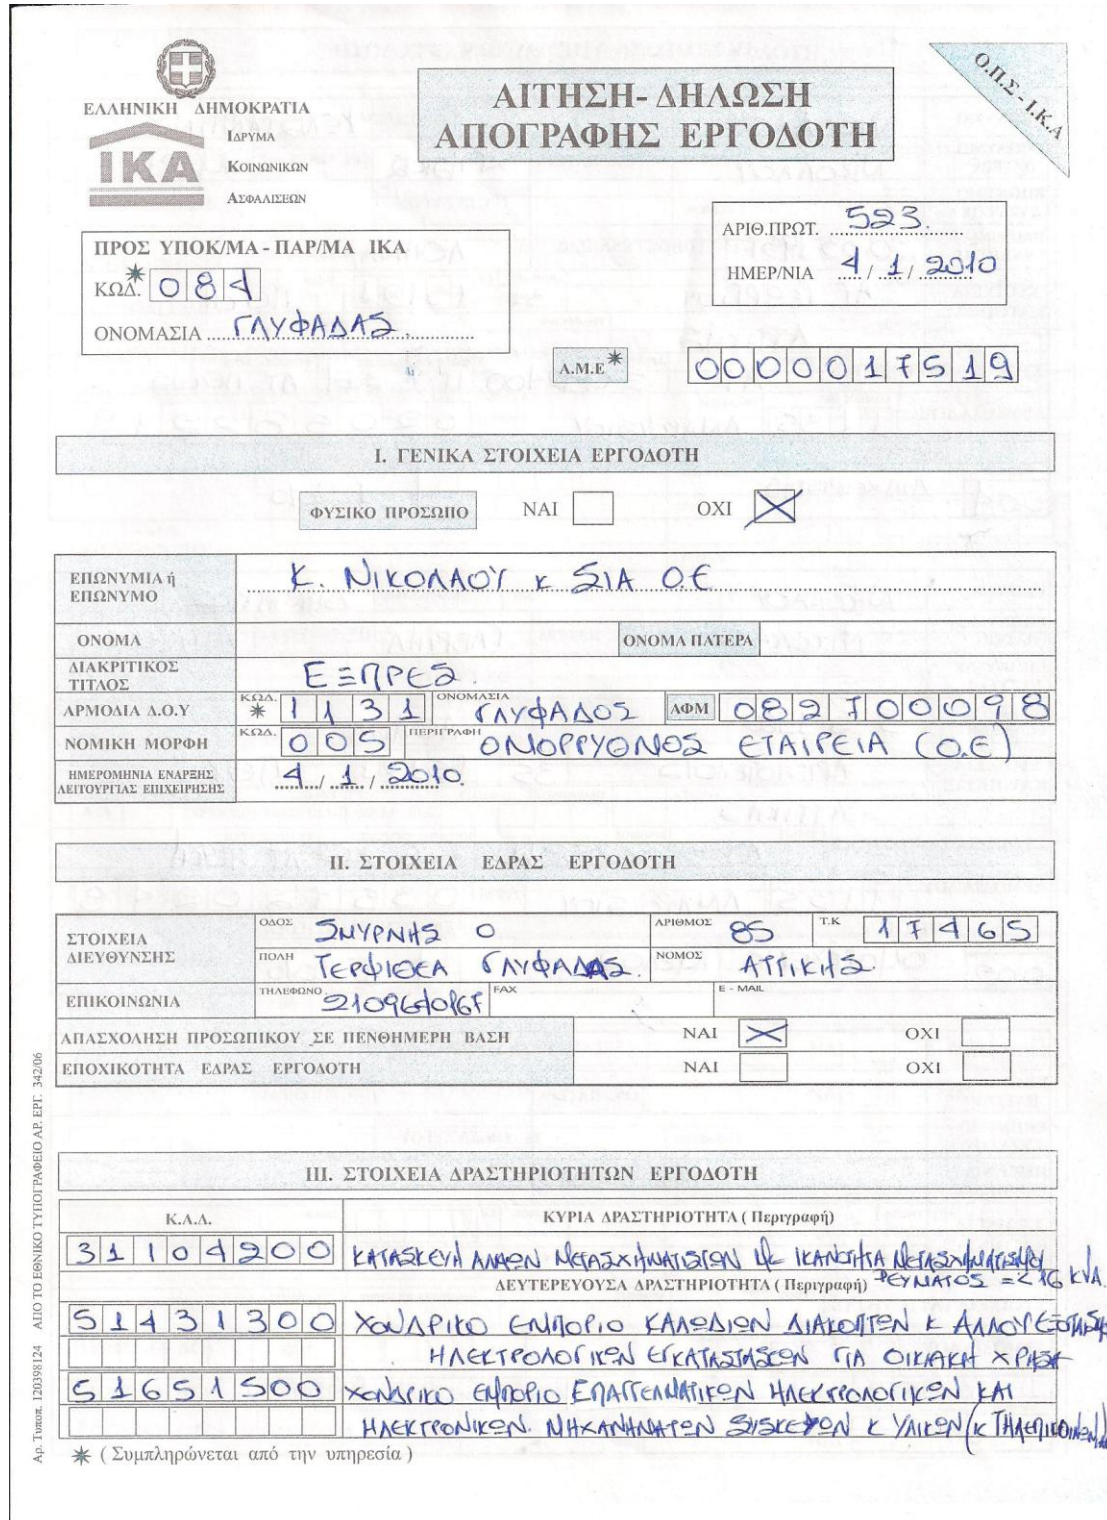 Ο.Π.Σ - Ι.Κ.Α
ΕΛΛΗΝΙΚΗ ΔΗΜΟΚΡΑΤΙΑ
ΙΚΑ
ΙΔΡΥΜΑ
ΚΟΙΝΩΝΙΚΩΝ
ΑΣΦΑΛΙΣΕΩΝ
ΑΙΤΗΣΗ- ΔΗΛΩΣΗ
ΑΠΟΓΡΑΦΗΣ ΕΡΓΟΔΟΤΗ
ΑΡΙΘ.ΠΡΩΤ. 523
ΗΜΕΡ/ΝΙΑ 4 / 1 / 2010
ΠΡΟΣ ΥΠΟΚ/ΜΑ - ΠΑΡ/ΜΑ ΙΚΑ
ΚΩΔ. 084
ΟΝΟΜΑΣΙΑ ΓΛΥΦΑΔΑΣ
Α.Μ.Ε* 0000017519
Ι. ΓΕΝΙΚΑ ΣΤΟΙΧΕΙΑ ΕΡΓΟΔΟΤΗ
ΦΥΣΙΚΟ ΠΡΟΣΩΠΟ ΝΑΙ ΟΧΙ X
ΕΠΩΝΥΜΙΑ ή ΕΠΩΝΥΜΟ Κ. ΝΙΚΟΛΑΟΥ κ ΣΙΑ Ο.Ε
ΟΝΟΜΑ ΟΝΟΜΑ ΠΑΤΕΡΑ
ΔΙΑΚΡΙΤΙΚΟΣ ΤΙΤΛΟΣ ΕΞΠΡΕΣ
ΑΡΜΟΔΙΑ Δ.Ο.Υ ΚΩΔ. * 1131 ΟΝΟΜΑΣΙΑ ΓΛΥΦΑΔΟΣ ΑΦΜ 082700098
ΝΟΜΙΚΗ ΜΟΡΦΗ ΚΩΔ. 005 ΠΕΡΙΓΡΑΦΗ ΟΜΟΡΡΥΘΜΟΣ ΕΤΑΙΡΕΙΑ (Ο.Ε)
ΗΜΕΡΟΜΗΝΙΑ ΕΝΑΡΞΗΣ ΛΕΙΤΟΥΡΓΙΑΣ ΕΠΙΧΕΙΡΗΣΗΣ 4 / 1 / 2010
ΙΙ. ΣΤΟΙΧΕΙΑ ΕΔΡΑΣ ΕΡΓΟΔΟΤΗ
ΣΤΟΙΧΕΙΑ ΔΙΕΥΘΥΝΣΗΣ ΟΔΟΣ ΣΜΥΡΝΗΣ Ο ΑΡΙΘΜΟΣ 85 Τ.Κ 17465
ΠΟΛΗ ΤΕΡΨΙΘΕΑ ΓΛΥΦΑΔΑΣ ΝΟΜΟΣ ΑΤΤΙΚΗΣ
ΕΠΙΚΟΙΝΩΝΙΑ ΤΗΛΕΦΩΝΟ FAX E - MAIL
ΑΠΑΣΧΟΛΗΣΗ ΠΡΟΣΩΠΙΚΟΥ ΣΕ ΠΕΝΘΗΜΕΡΗ ΒΑΣΗ ΝΑΙ X ΟΧΙ
ΕΠΟΧΙΚΟΤΗΤΑ ΕΔΡΑΣ ΕΡΓΟΔΟΤΗ ΝΑΙ ΟΧΙ
ΙΙΙ. ΣΤΟΙΧΕΙΑ ΔΡΑΣΤΗΡΙΟΤΗΤΩΝ ΕΡΓΟΔΟΤΗ
Κ.Α.Δ. ΚΥΡΙΑ ΔΡΑΣΤΗΡΙΟΤΗΤΑ ( Περιγραφή)
31104200 ΚΑΤΑΣΚΕΥΗ ΑΛΛΩΝ ΜΕΤΑΣΧΗΜΑΤΙΣΤΩΝ ΜΕ ΙΚΑΝΟΤΗΤΑ ΜΕΤΑΣΧΗΜΑΤΙΣΜΟΥ
ΔΕΥΤΕΡΕΥΟΥΣΑ ΔΡΑΣΤΗΡΙΟΤΗΤΑ ( Περιγραφή) ΡΕΥΜΑΤΟΣ =< 16 KVA.
51431300 ΧΟΝΔΡΙΚΟ ΕΜΠΟΡΙΟ ΚΑΛΩΔΙΩΝ ΔΙΑΚΟΠΤΩΝ Κ ΑΛΛΟΥ
ΗΛΕΚΤΡΟΛΟΓΙΚΩΝ ΕΓΚΑΤΑΣΤΑΣΕΩΝ ΓΙΑ ΟΙΚΙΑΚΗ ΧΡΗΣΗ
51651500 ΧΟΝΔΡΙΚΟ ΕΜΠΟΡΙΟ ΕΠΑΓΓΕΛΜΑΤΙΚΩΝ ΗΛΕΚΤΡΟΛΟΓΙΚΩΝ ΚΑΙ
ΗΛΕΚΤΡΟΝΙΚΩΝ ΜΗΧΑΝΗΜΑΤΩΝ ΣΥΣΚΕΥΩΝ Κ ΥΛΙΚΩΝ
* ( Συμπληρώνεται από την υπηρεσία )
Αρ. Τυποπ. 120398124 ΑΠΟ ΤΟ ΕΘΝΙΚΟ ΤΥΠΟΓΡΑΦΕΙΟ ΑΡ. ΕΡΓ. 342/06